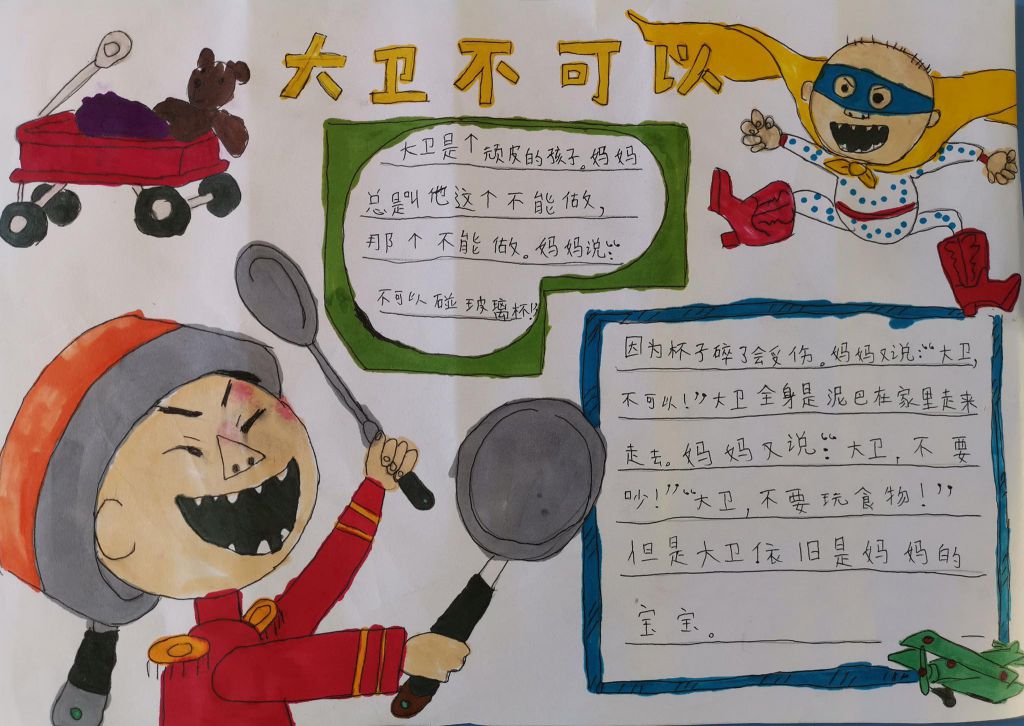 大卫不可以
大卫是个顽皮的孩子。妈妈
总是叫他这个不能做，
那个不能做。妈妈说：“
不可以碰玻璃杯！”
因为杯子碎了会受伤。妈妈又说：“大卫，
不可以！”大卫全身是泥巴在家里走来
走去。妈妈又说：“大卫，不要
吵！”“大卫，不要玩食物！”
但是大卫依旧是妈妈的
宝宝。